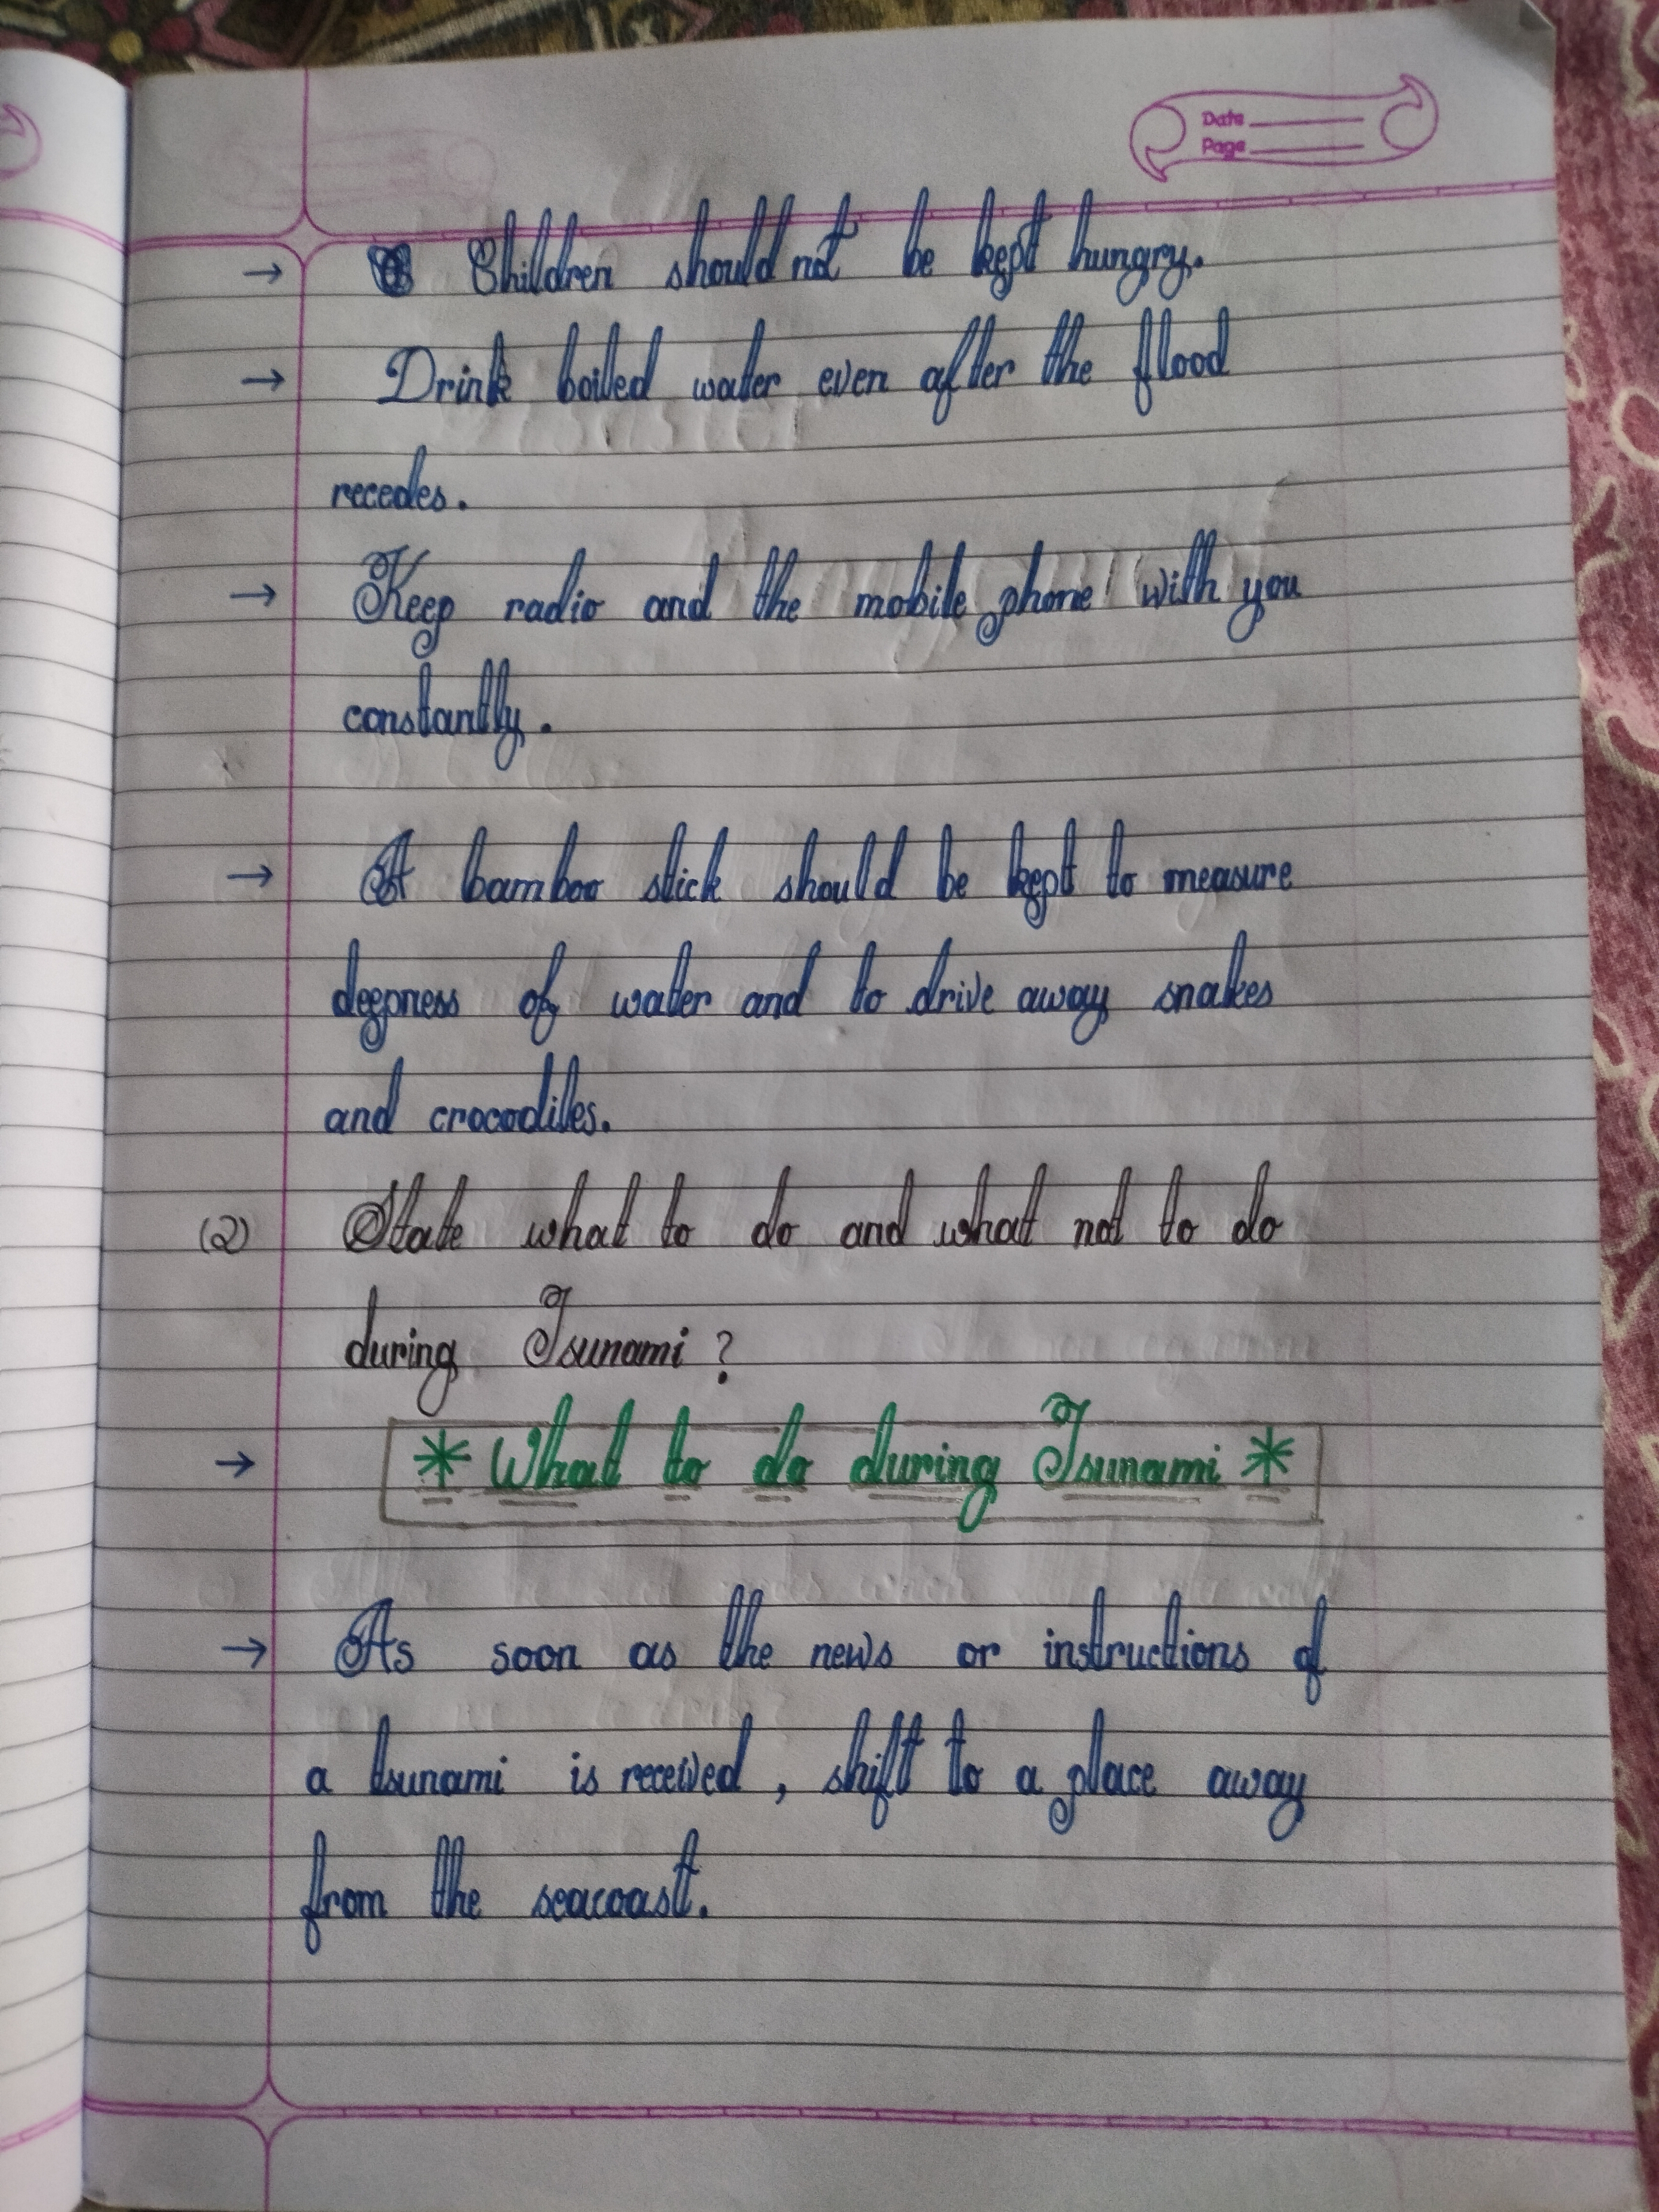 Date
Page
→ Children should not be kept hungry.
→ Drink boiled water even after the flood
recedes.
→ Keep radio and the mobile phone with you
constantly.
→ A bamboo stick should be kept to measure
deepness of water and to drive away snakes
and crocodiles.
(2) State what to do and what not to do
during Tsunami ?
→ * What to do during Tsunami *
→ As soon as the news or instructions of
a tsunami is received , shift to a place away
from the seacoast.